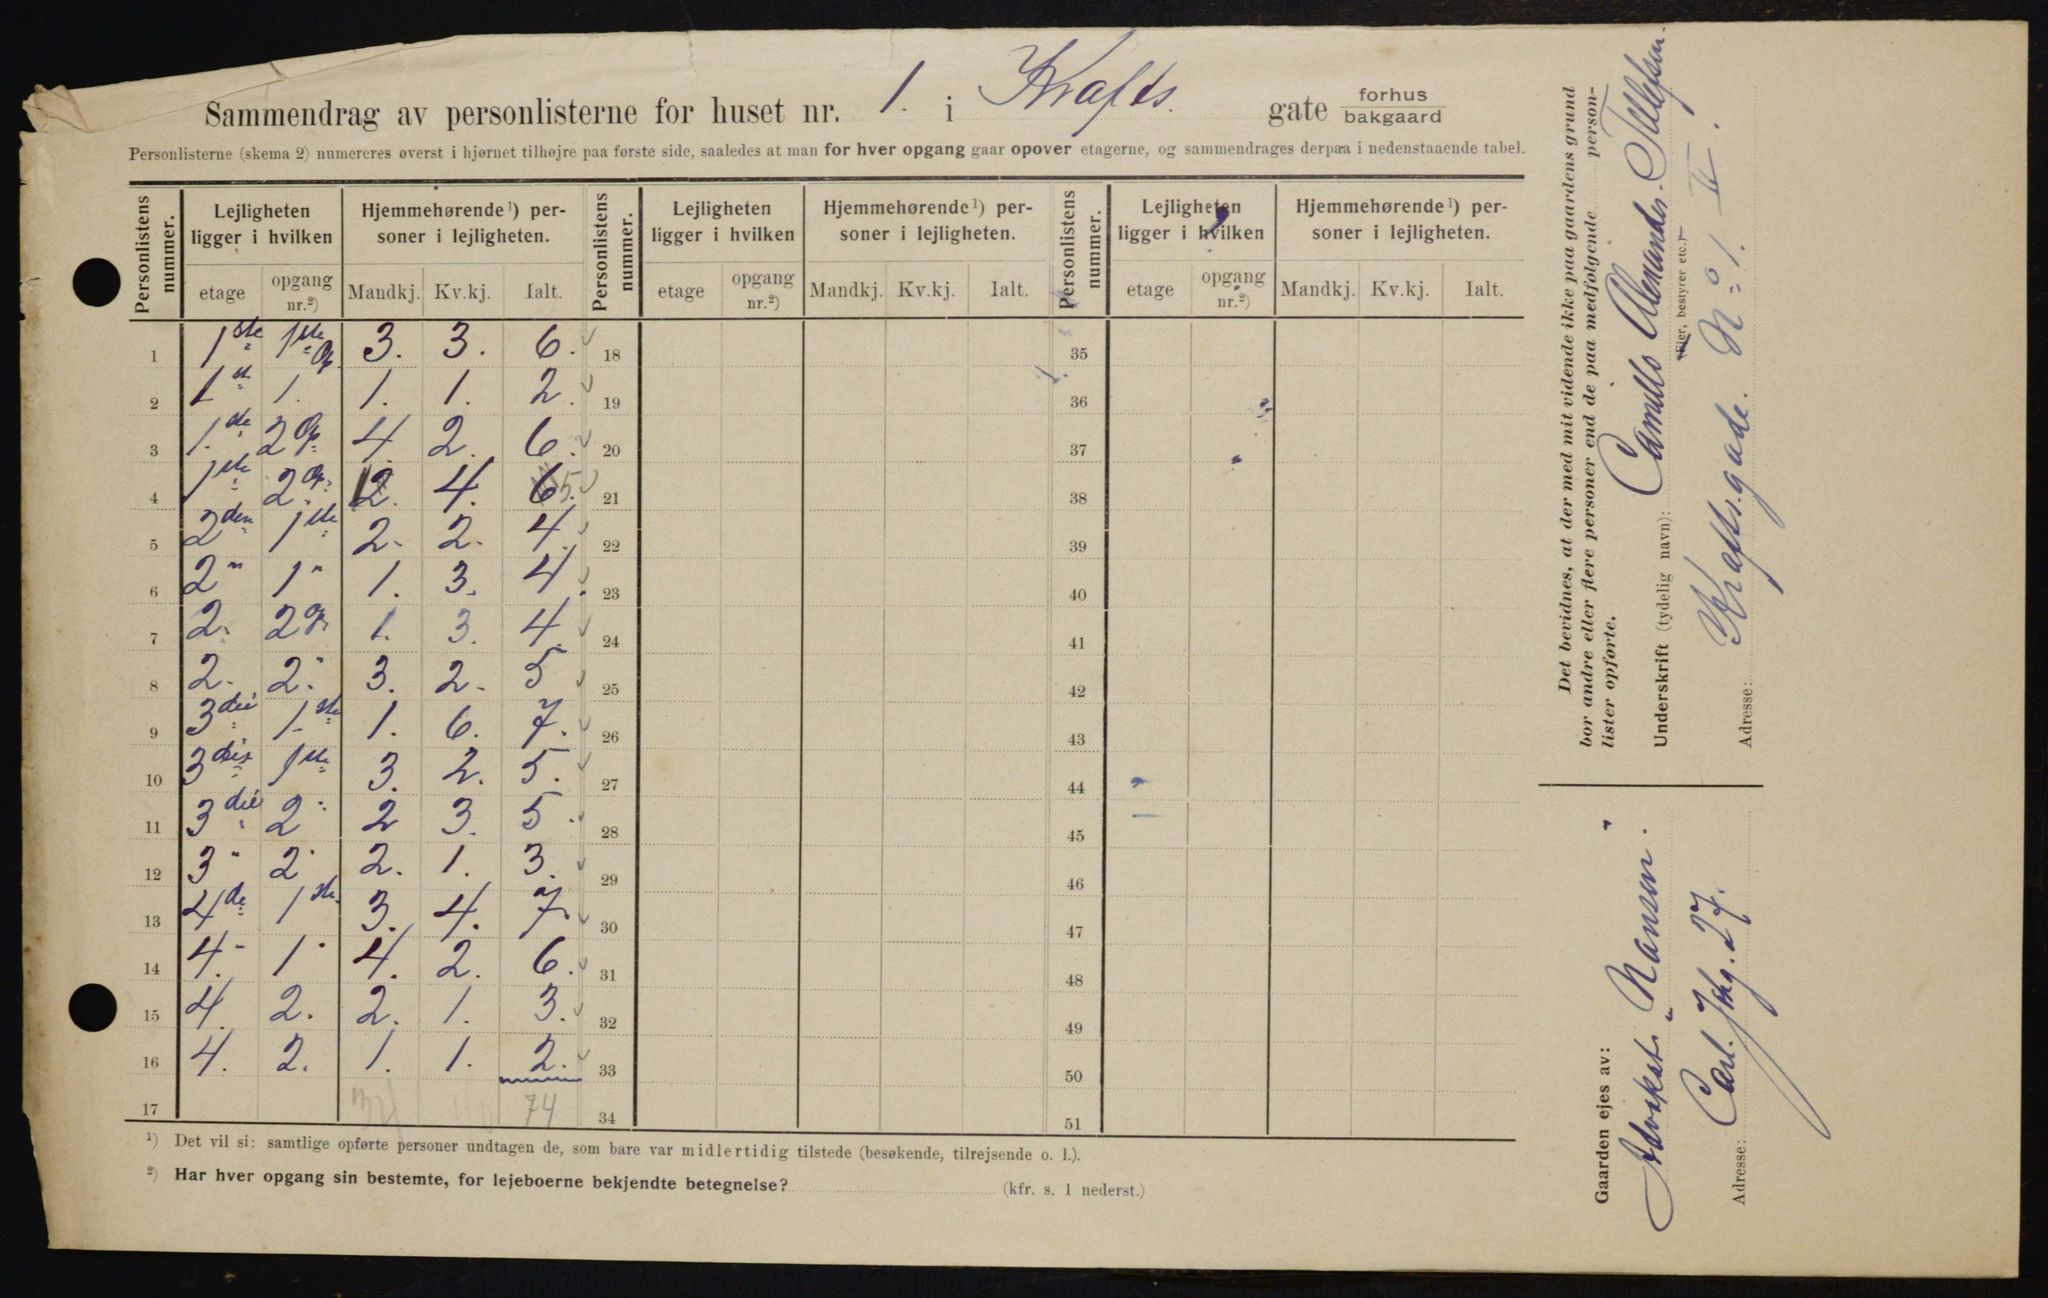 Sammendrag av personlisterne for huset nr. 1. i Krafts. gate forhus bakgaard
Personlisterne (skema 2) numereres øverst i hjørnet tilhøjre paa første side, saaledes at man for hver opgang gaar opover etagerne, og sammendrages derpaa i nedenstaaende tabel.
Personlistens nummer. Lejligheten ligger i hvilken Hjemmehørende¹) personer i lejligheten. Personlistens nummer. Lejligheten ligger i hvilken Hjemmehørende¹) personer i lejligheten. Personlistens nummer. Lejligheten ligger i hvilken Hjemmehørende¹) personer i lejligheten.
etage opgang nr.²) Mandkj. Kv.kj. Ialt. etage opgang nr.²) Mandkj. Kv.kj. Ialt. etage opgang nr.²) Mandkj. Kv.kj. Ialt.
1 1ste 1ste Op 3. 3. 6. 18 35
2 1st 1. 1. 1. 2. 19 36
3 1.ste 2 Op 4. 2. 6. 20 37
4 1ste 2 Op. 2. 4. 6. 5 21 38
5 2den 1ste 2. 2. 4. 22 39
6 2" 1" 1. 3. 4. 23 40
7 2. 2 Op 1. 3. 4. 24 41
8 2. 2." 3. 2. 5 25 42
9 3die 1.ste 1. 6. 7. 26 43
10 3die 1ste 3. 2. 5. 27 44
11 3die 2" 2 3. 5. 28 45
12 3" 2" 2. 1. 3. 29 46
13 4de 1ste 3. 4. 7. 30 47
14 4." 1" 4. 2. 6. 31 48
15 4. 2. 2. 1. 3. 32 49
16 4. 2. 1. 1. 2. 33 50
17 74 34 51
¹) Det vil si: samtlige opførte personer undtagen de, som bare var midlertidig tilstede (besøkende, tilrejsende o. l.).
²) Har hver opgang sin bestemte, for lejeboerne bekjendte betegnelse? (kfr. s. 1 nederst.)
Det bevidnes, at der med mit vidende ikke paa gaardens grund
bor andre eller flere personer end de paa medfølgende personlister opførte.
Underskrift (tydelig navn): Camillo Alexander Tellefsen.
(Ejer, bestyrer etc.)
Adresse: Kraftsgade. No 1. II.
Gaarden ejes av:
Advokat Nansen.
Adresse: Carl. Johg. 27.